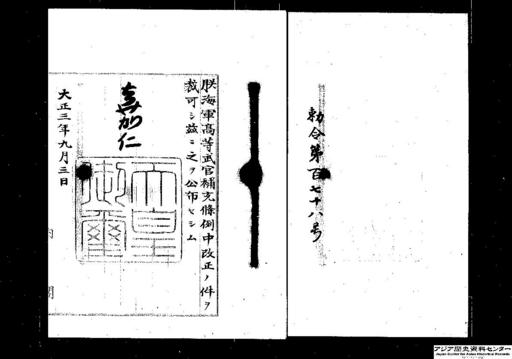 勅令第百七十八号
朕海軍高等武官補充條例中改正ノ件ヲ
裁可シ茲ニ之ヲ公布セシム
嘉仁
天皇
御璽
大正三年九月三日
内
アジア歴史資料センター
Japan Center for Asian Historical Records